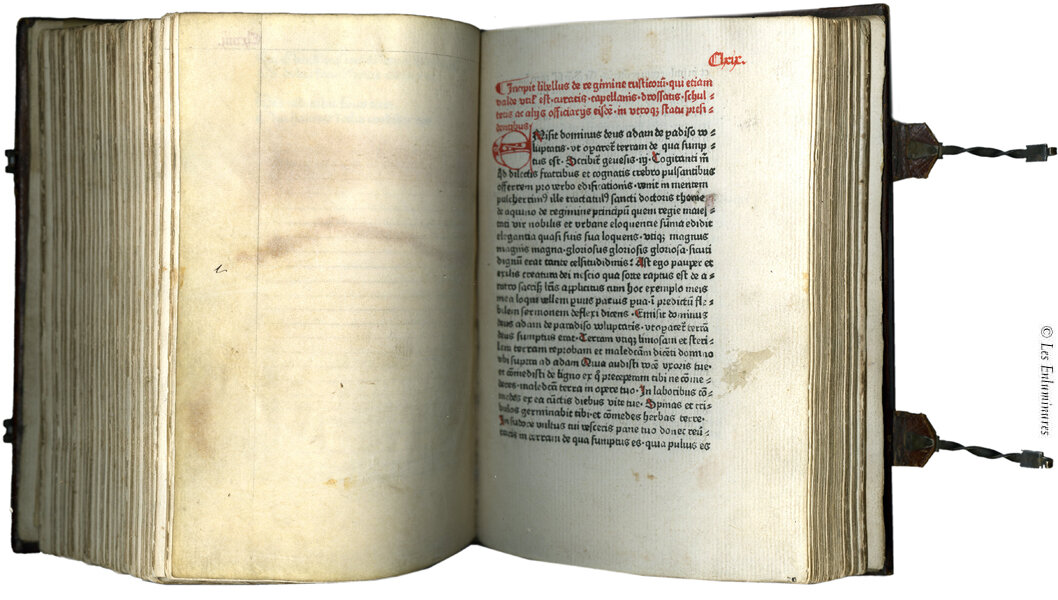 Clxix.
Incipit libellus de regimine rusticoꝝ·qui etiam
valde vtilꝭ est·curatis·capellanis·drossatis·schul⸗
tetus ac alijs officiarijs eisdē·in vtroqꝫ statu presi⸗
dentibus
EMisit dominus deus adam de padiso vo⸗
luptatis·vt opareť terram de qua sump⸗
tus est·Scribiť genesis·iij·Cogitanti m̄
ꝙ dilectis fratribus et cognatis crebro pulsantibus
offerrem pro verbo edificationis·venit in mentem
pulcherrimꝰ ille tractatulꝰ sancti doctoris thome
de aquino de regimine principū quem regie maies⸗
tati vir nobilis et vrbane eloquentie sūma edidit
elegantia quasi suis sua loquens·vtiqꝫ magnus
magnis magna·gloriosus gloriosis gloriosa·sicuti
dignū erat tante celsitudinis: Ast ego pauper et
exilis creatura dei nescio qua sorte raptus est de a⸗
cum hoc exemplo meis
mea loqui vellem puus paruis pua·ī predictū fle⸗
bilem sermonem deflexi dicens·Emisit dominꝰ
deus adam de paradiso voluptatis·vt opareť terrā
deus sumptus erat·Terram vtiqꝫ limosam et steri⸗
lem terram reprobam et maledcām dicēti domino
vbi supra ad adam Quia audisti vocē vxoris tue·
et comedisti de ligno ex q̄ preceperam tibi ne cōme⸗
deres·maledcā terra in opere tuo·In laboribus cō⸗
medes ex ea cūctis diebus vite tue·Spinas et tri⸗
bulos germinabit tibi·et cōmedes herbas terre·
In sudore vultus tui vesceris pane tuo donec reū⸗
taris in terram de qua sumptus es·quia puluis es
© Les Enluminures